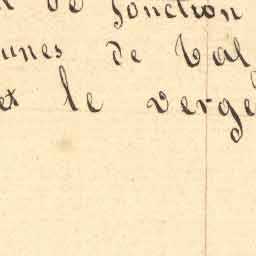 de jonction
unes de Val
et le verge